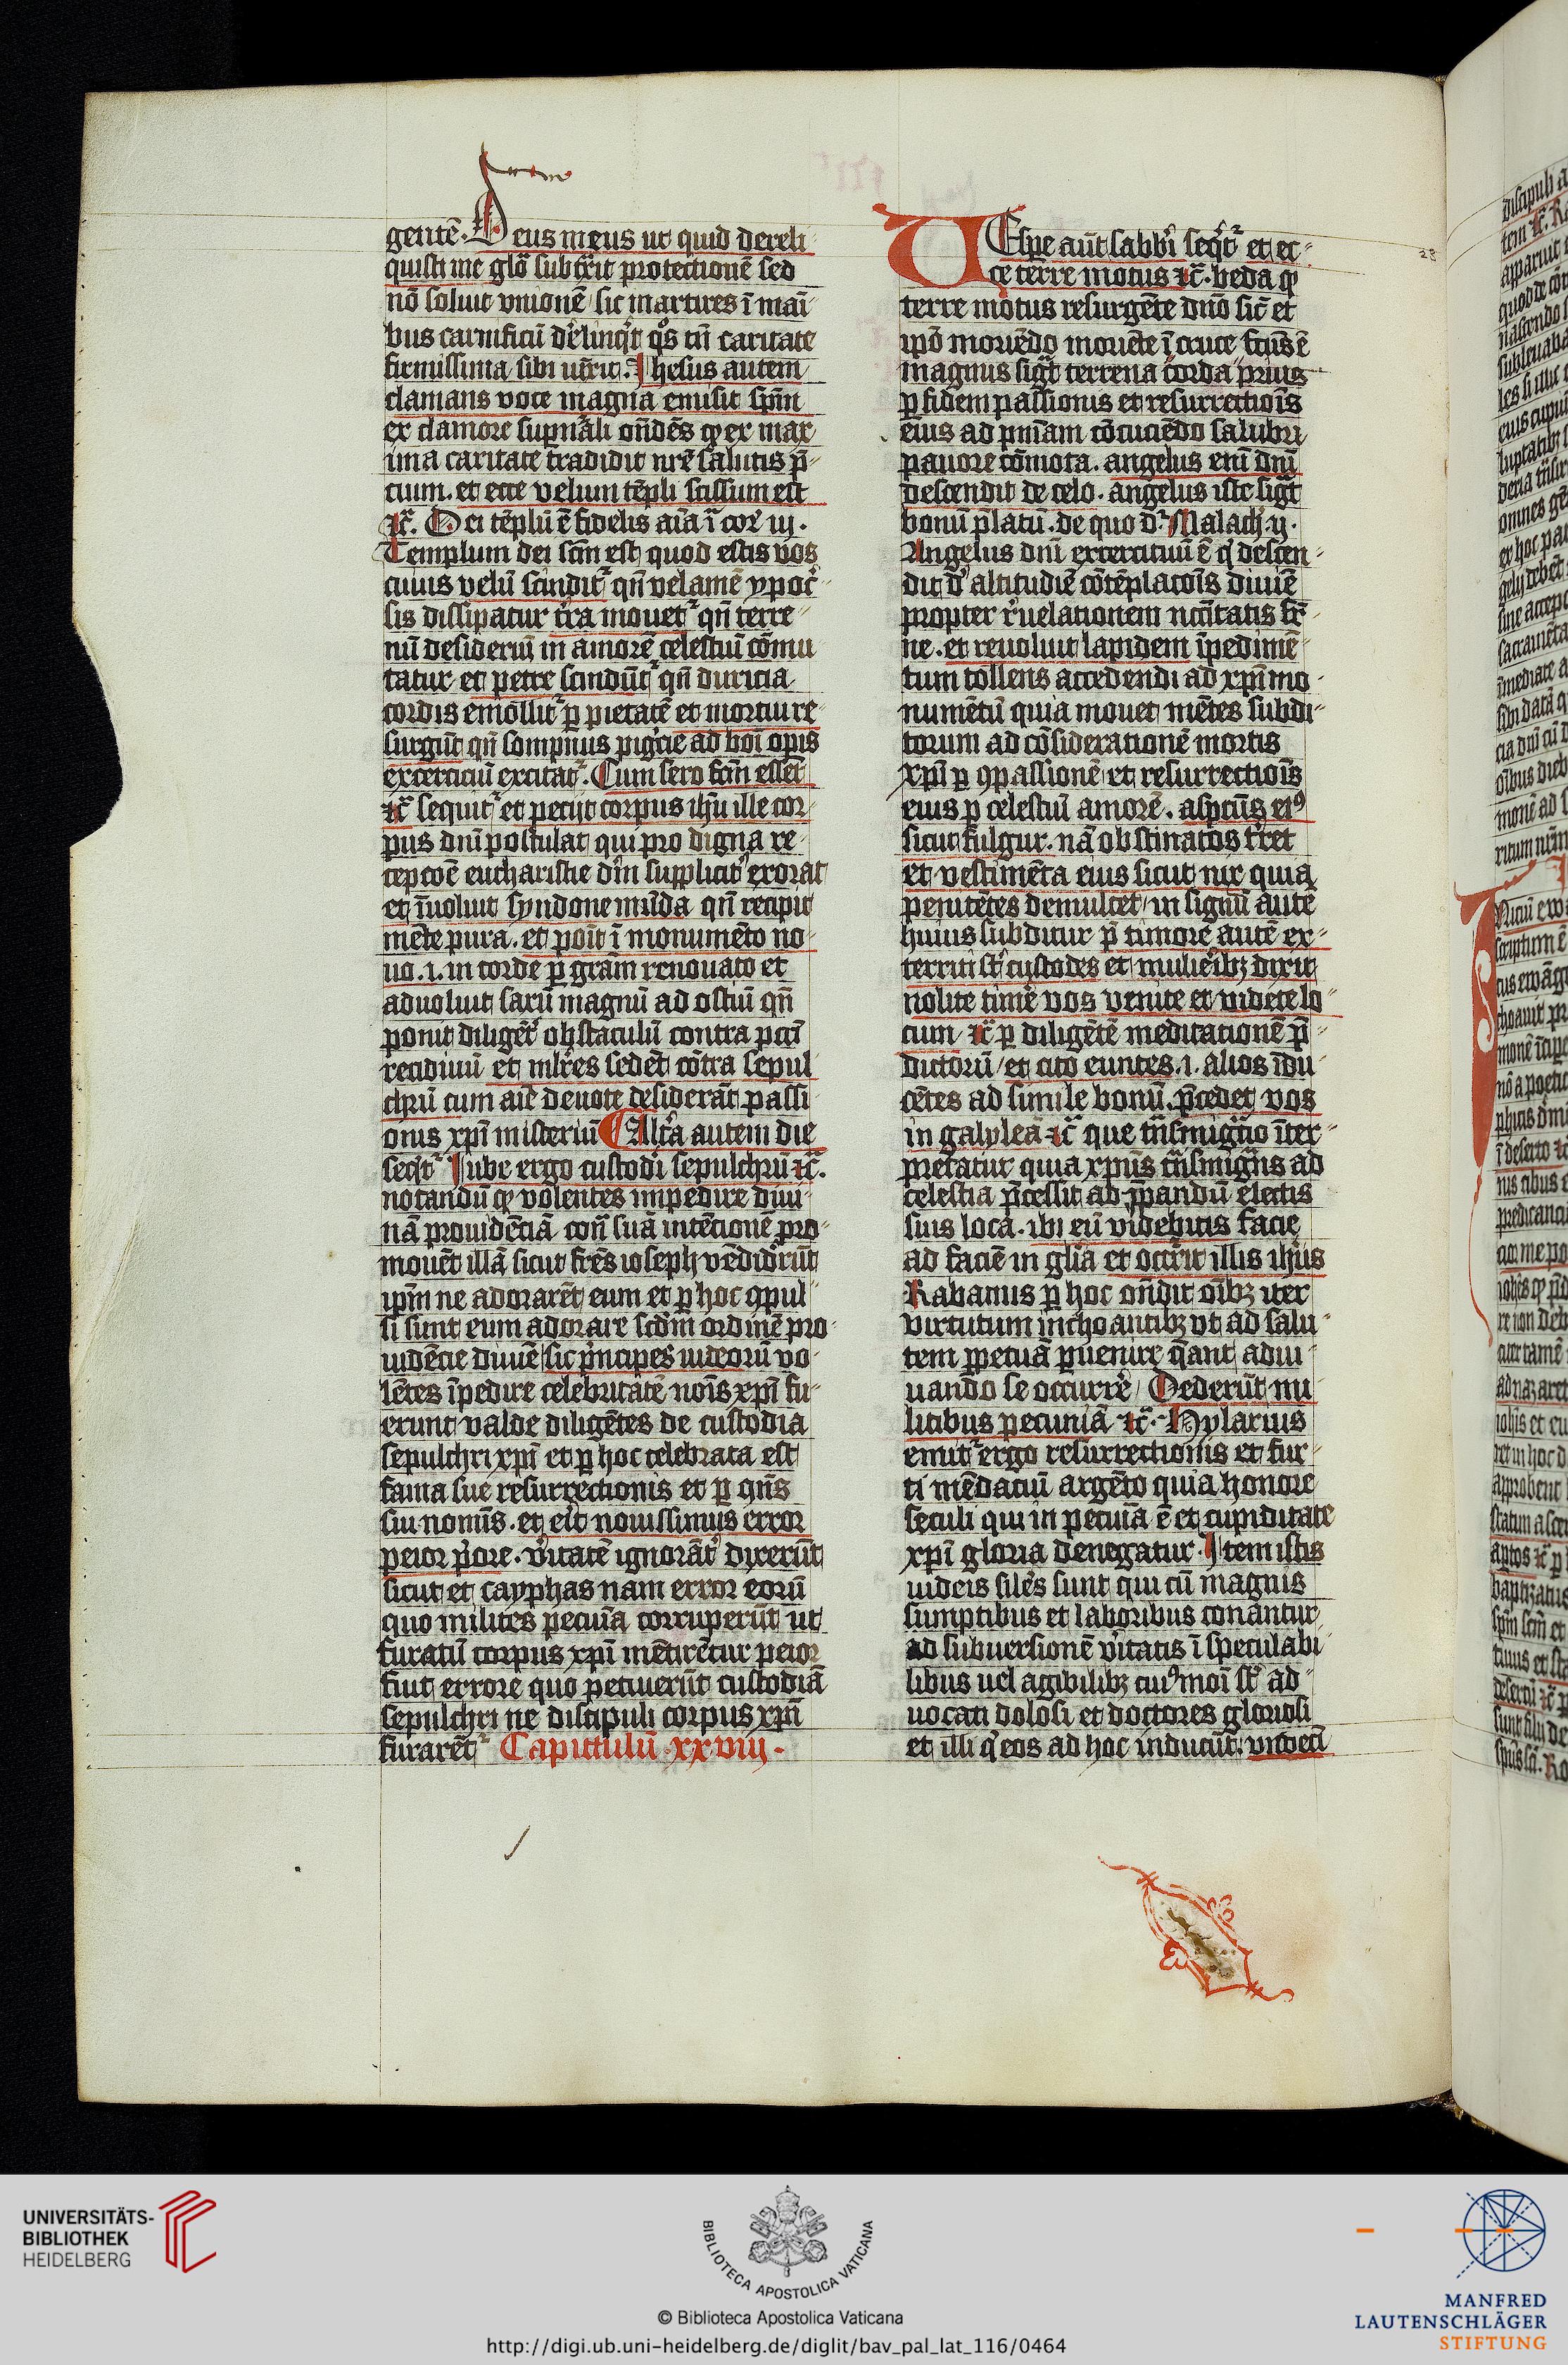 gentē. Deus meus ut quid dereli-
quisti me glo͞ subtrͣit protectionē sed
nō soluit vnionē sic martires ī mai͞
bus carnificū de͛linqͥt qͦs tn͞ caritate
firmissima sibi
Jhesus autem
clamans voce magna emisit spm͞
ex clamore
on͞dēs ꝙ ex max
ima caritate tradidit nr͞e salutis p̄-
cium. et ecce velum tēpli scissum est
⁊c̄. Dei tēplū ē fidelis aīa ī coꝝ iij.
Templum dei scm͞ est quod estis vos
cuius velū scinditᷣ qn͞ velamē ypocͥ-
sis dissipatur tr͛a mouetᷣ qn͞ terre-
nū desideriū in amorē celestiū cōmu
tatur et petre scindūtᷣ qn͞ duricia
cordis emollitᷣ ꝑ pietatē et mortui re-
surgūt qn͞ sompnus pigcͥie ad boī opis
exercicιū excitatᷣ. Cum sero fcm͞ esset
⁊c̄ sequitᷣ et pecijt corpus ihū ille cor-
pus dnī postulat qui pro digna re-
cepcōē eucharistie dm͞ supplicit͛ exorat
et īuoluit syndone mūda qn͞ recipit
mēte pura. et poīt ī monumēto no-
uo .i. in corde ꝑ gram͞ renouato et
aduoluit saxū magnū ad ostiū qn͞
ponit diligēt͛ obstaculū contra pccī
recidiuū et mlr͛es sedēt cōtra sepul
chrū cum aīe deuote desiderāt passi-
onis xpī misteriū Alt͛a autem die
seqͥtᷣ Jube ergo custodi͛ sepulchrū ⁊c̄.
notandū ꝙ volentes impedire diui-
nā prouidēciā con͞ suā intēcionē pro-
mouēt illā sicut fr͞es ioseph vēdidͤrūt
ipm͞ ne adorarēt eum et ꝑ hoc ꝯpul-
si sunt eum adorare scdm͞ ordinē pro-
uidēcie diuīe sic pͥncipes iudeorū vo-
lētes īpedire celebritatē noīs xpī fu-
erunt valde diligētes de custodia
sepulchri xpī et ꝑ hoc celebrata est
fama sue resurrectionis et ꝑ ꝯn͞s
sui nomīs. et eīt nouissimus error
peior pͥore. vͤitatē ignorāt͛ dixerūt
sicut et cayphas nam error eorū
quo milites pecuīa corruperūt ut
furatū corpus xpī mētirētur peior
fiut errore quo petiuerūt custodiā
sepulchri ne discipuli corpus xpī
furarētᷣ Capitulū .xxviij.
VEspe aut͞ sabbī seqͥtᷣ et ec-
ce terre motus ⁊c̄. beda ꝙ
terre motus resurgēte dnō sic͞ et
ipō moriēdo moriēte ī cruce fcūs ē
magnus sigͣt terrena corda prius
ꝑ fidem passionis et resurrectiōis
eius ad pnīam cōcuciēdo salubri
pauore cōmota. angelus enī dnī
descendit de celo. angelus iste sigͣt
bonū p̄latū. de quo dᷣ Malach ij.
Angelus dnī exercituū ē qͥ descen-
dit dͤ altitudīe cōtēplacōis diuīe
propter rͤuelationem
ne. et reuoluit lapidem īpedimē-
tum tollens accedendi ad xpm͞ mo-
numētū quia mouet mētes subdi-
torum ad cōsiderationē mortis
xpī ꝑ ꝯpassionē et resurrectiōis
eius ꝑ celestiū amorē. aspcūs eiꝰ
sicut fulgur. nā obstinatos tͤret
et vestimēta eius sicut nix quia
penitētes demulcet in signū autē
huius subditur p̄ timore autē ex-
territi st͞ custodes et mulierͥibꝫ dixit
nolite timͤe vos venite et videte lo-
cum ⁊c̄ ꝑ diligētē meditationē p̄-
dictorū et cito euntes .i. alios īdu
cētes ad simile bonū. p̄cedet vos
in galylea ⁊c̄ que tn͞smigͣtio īter-
pretatur quia xpūs tn͞smigͣns ad
celestia p̄cessit ad p̄parandū electis
suis loca. ibi eū videbitis facie
ad faciē in glīa et occrͥit illis ihūs
Rabanus ꝑ hoc on͞dit oībꝫ iter
virtutum inchoantibꝫ vt ad salu-
tem ꝑpetuā ꝑuenire qͤant adiu-
uando se occurrͤe Dederūt mi
litibus pecuniā ⁊c̄. Hylarius
emitᷣ ergo resurrectionis et fur-
ti mēdaciū argēto quia honore
seculi qui in pecuīa ē et cupiditate
xpī gloria denegatur. Item istis
iudeis siles sunt qui cū magnis
sumptibus et laboribus conantur
ad subuersionē vͤitatis ī speculabi-
libus uel agibilibꝫ cuiꝰmoī st͞ ad-
uocati dolosi et doctores gloriosi
et illi qͥ eos ad hoc inducūt. vndecī
28
UNIVERSITÄTS-
BIBLIOTHEK
HEIDELBERG
BIBLIOTECA APOSTOLICA VATICANA
© Biblioteca Apostolica Vaticana
http://digi.ub.uni-heidelberg.de/diglit/bav_pal_lat_116/0464
MANFRED
LAUTENSCHLÄGER
STIFTUNG